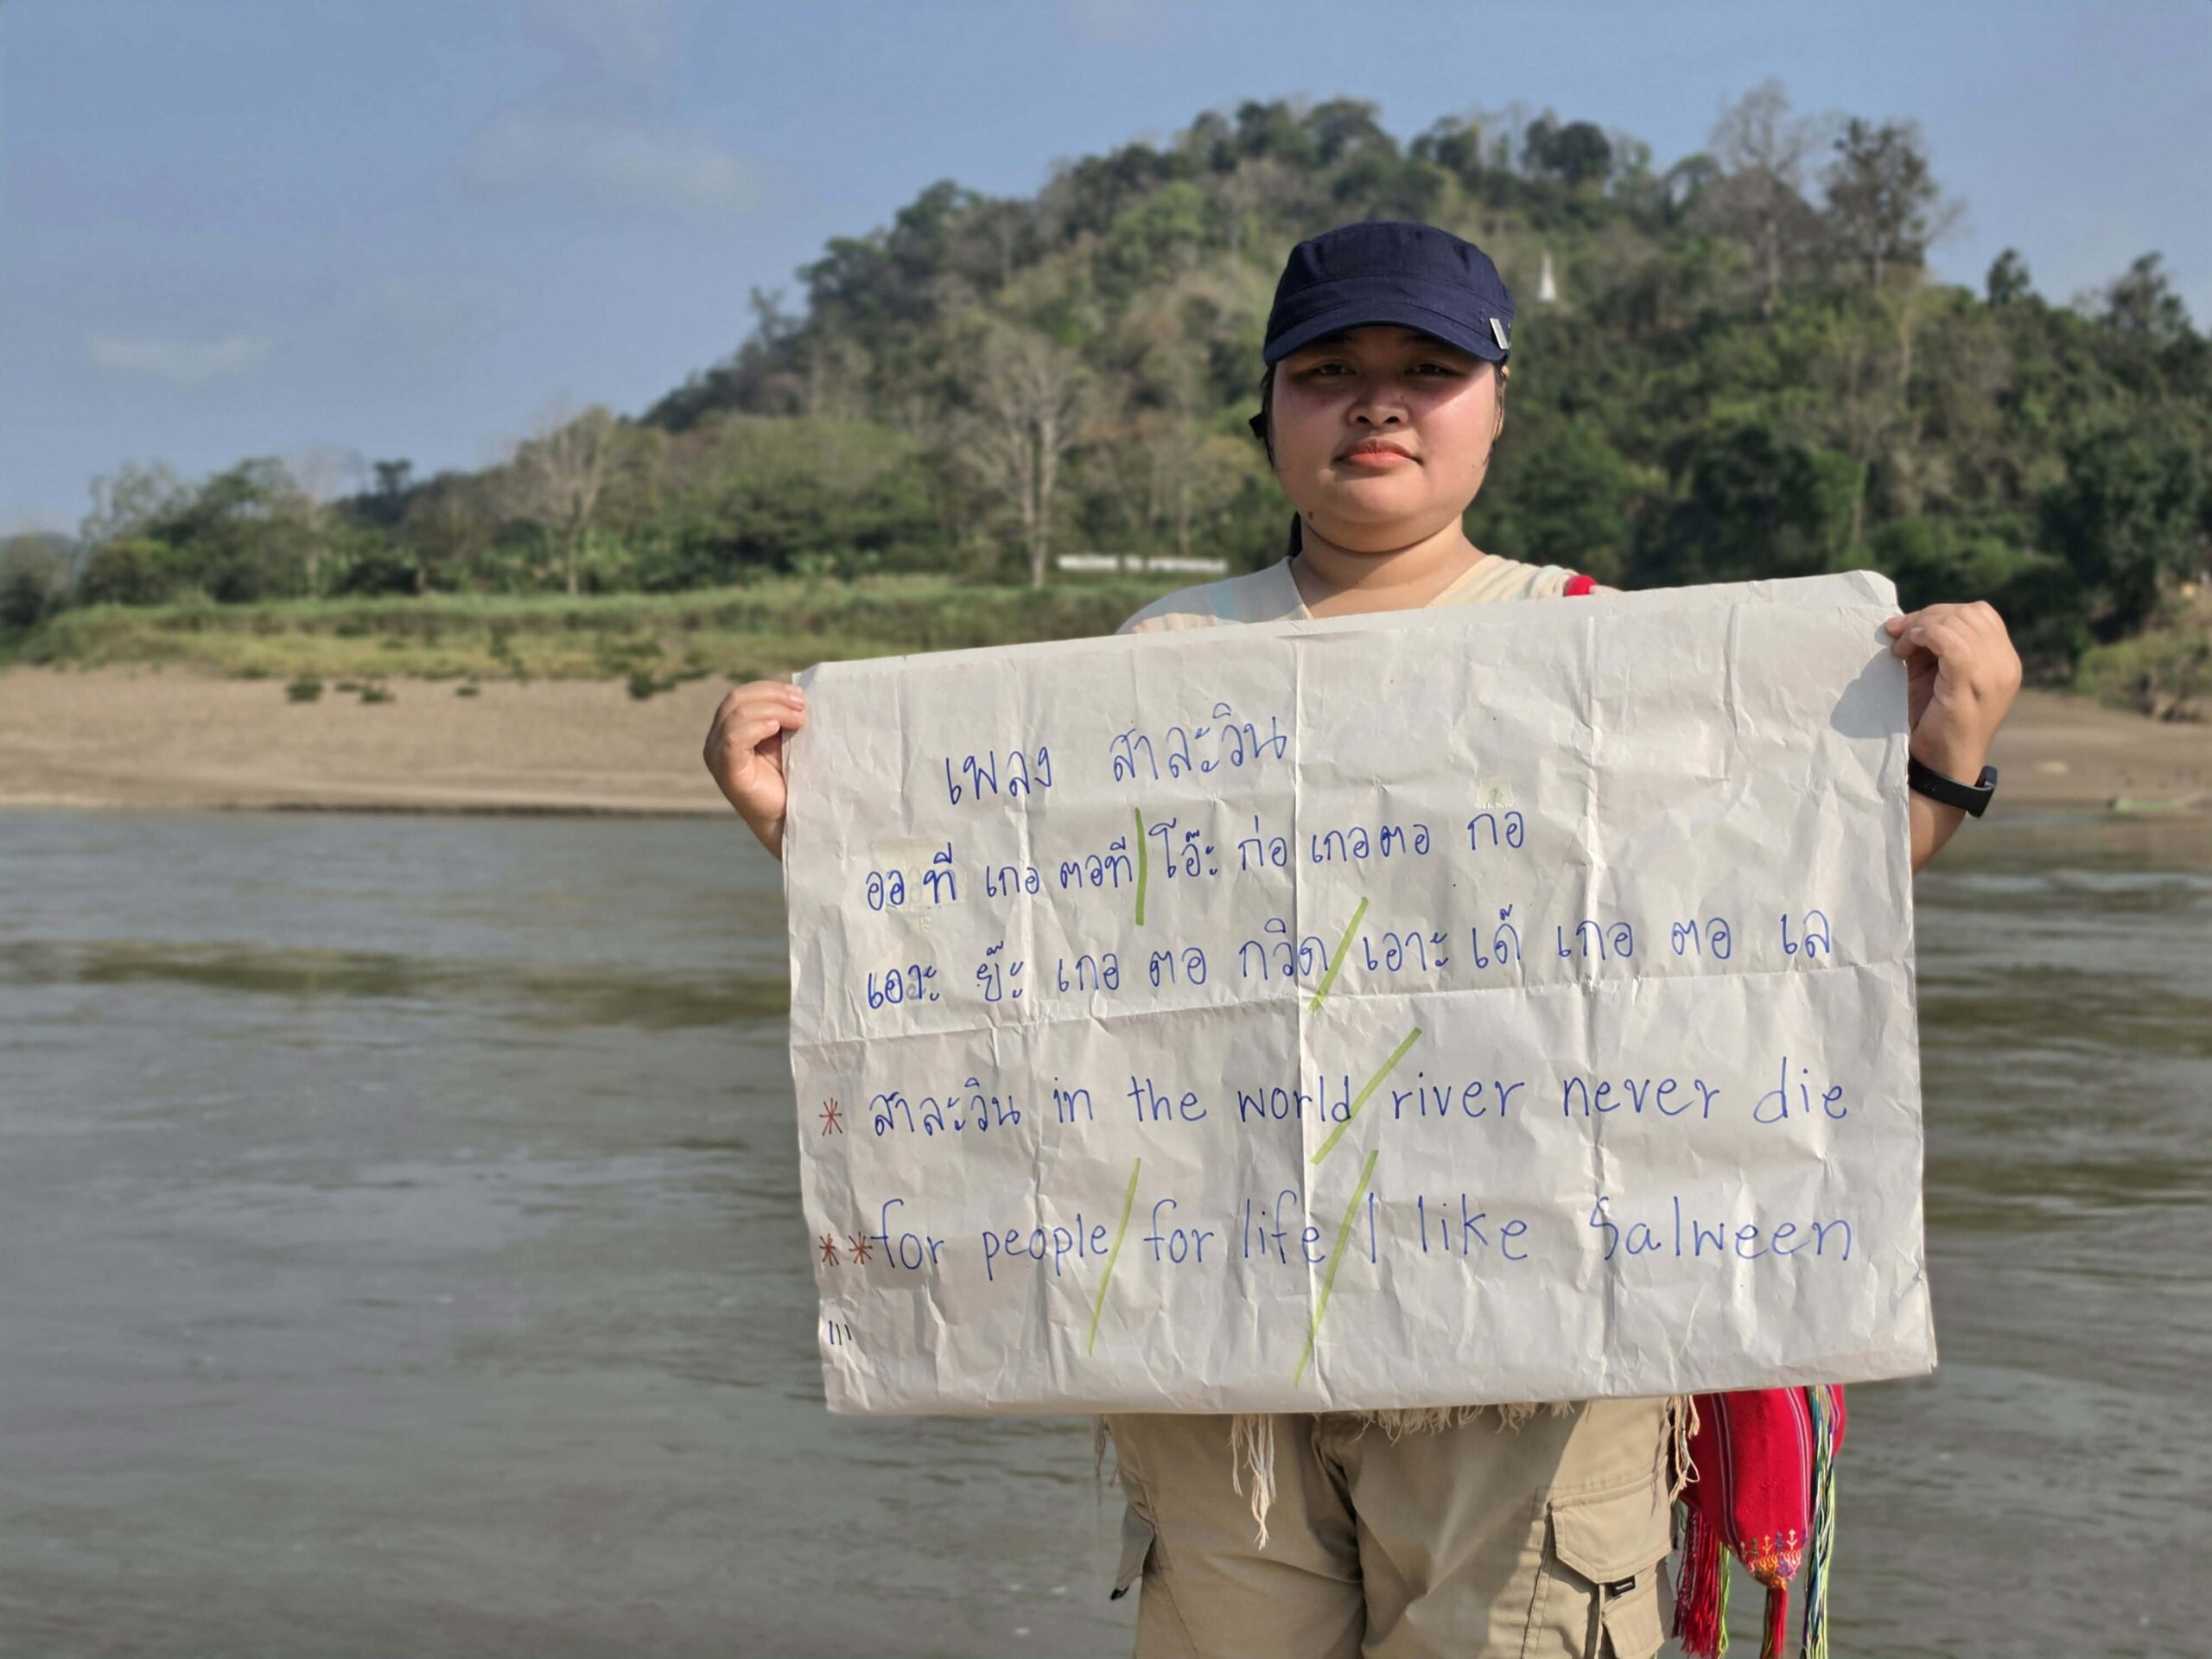 เพลง สาละวิน
ออ ที เกอ ตอที / โอ๊ะ ก่อ เกอ ตอ กอ
เอาะ ย๊ะ เกอ ตอ กวิด / เอาะ เด๊ เกอ ตอ เล
* สาละวิน in the world / river never die
** for people / for life / I like Salween